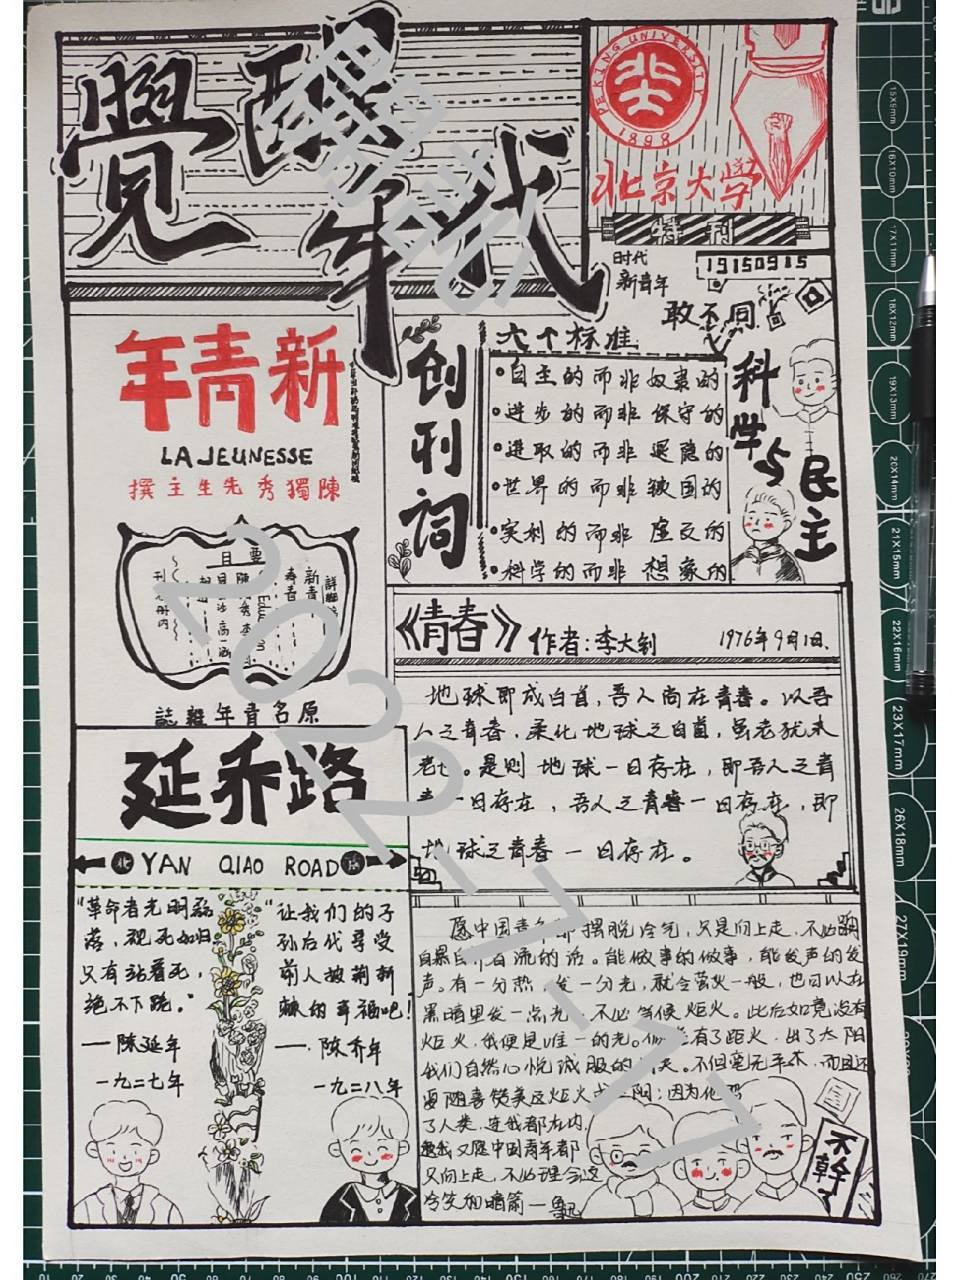 覺醒年代
PEKING UNIVERSITY
1898
北京大学
特刊
时代
新青年
19150915
敢不同
年青新
LA JEUNESSE
撰主生先秀獨陳
目要
誌雜年青名原
创刊词
六个标准
•自主的而非奴隶的
•进步的而非保守的
•进取的而非退隐的
•世界的而非锁国的
•实利的而非虚文的
•科学的而非想象的
科学与民主
《青春》作者:李大钊 1976年9月1日.
地球即成白首，吾人尚在青春。以吾
人之青春，柔化地球之白首，虽老犹未
老也。是则地球一日存在，即吾人之青
春一日存在，吾人之青春一日存在，即
地球之青春一日存在。
延乔路
北 YAN QIAO ROAD 南
“革命者光明磊
落，视死如归
只有站着死，
绝不下跪。”
——陈延年
一九二七年
“让我们的子
孙后代享受
前人披荆斩
棘的幸福吧!
——陈乔年
一九二八年
愿中国青年都摆脱冷气，只是向上走，不必听
自暴自弃者流的话。能做事的做事，能发声的发
声。有一分热，发一分光，就令萤火一般，也可以在
黑暗里发一点光，不必等候炬火。此后如竟没有
炬火，我便是唯一的光。倘若有了距火，出了太阳
我们自然心悦诚服的消失。不但毫无不平，而且还
要随喜赞美这炬火或太阳；因为他照
了人类，连我都在内。
我又愿中国青年都
只向上走，不必理会这
冷笑和暗箭—鲁迅
不干了
2022-7-17